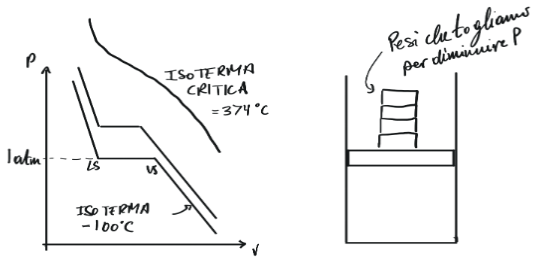 P
ISOTERMA
CRITICA
=374°C
1 atm
LS
VS
ISOTERMA
-100°C
V
Pesi che togliamo
per diminuire P